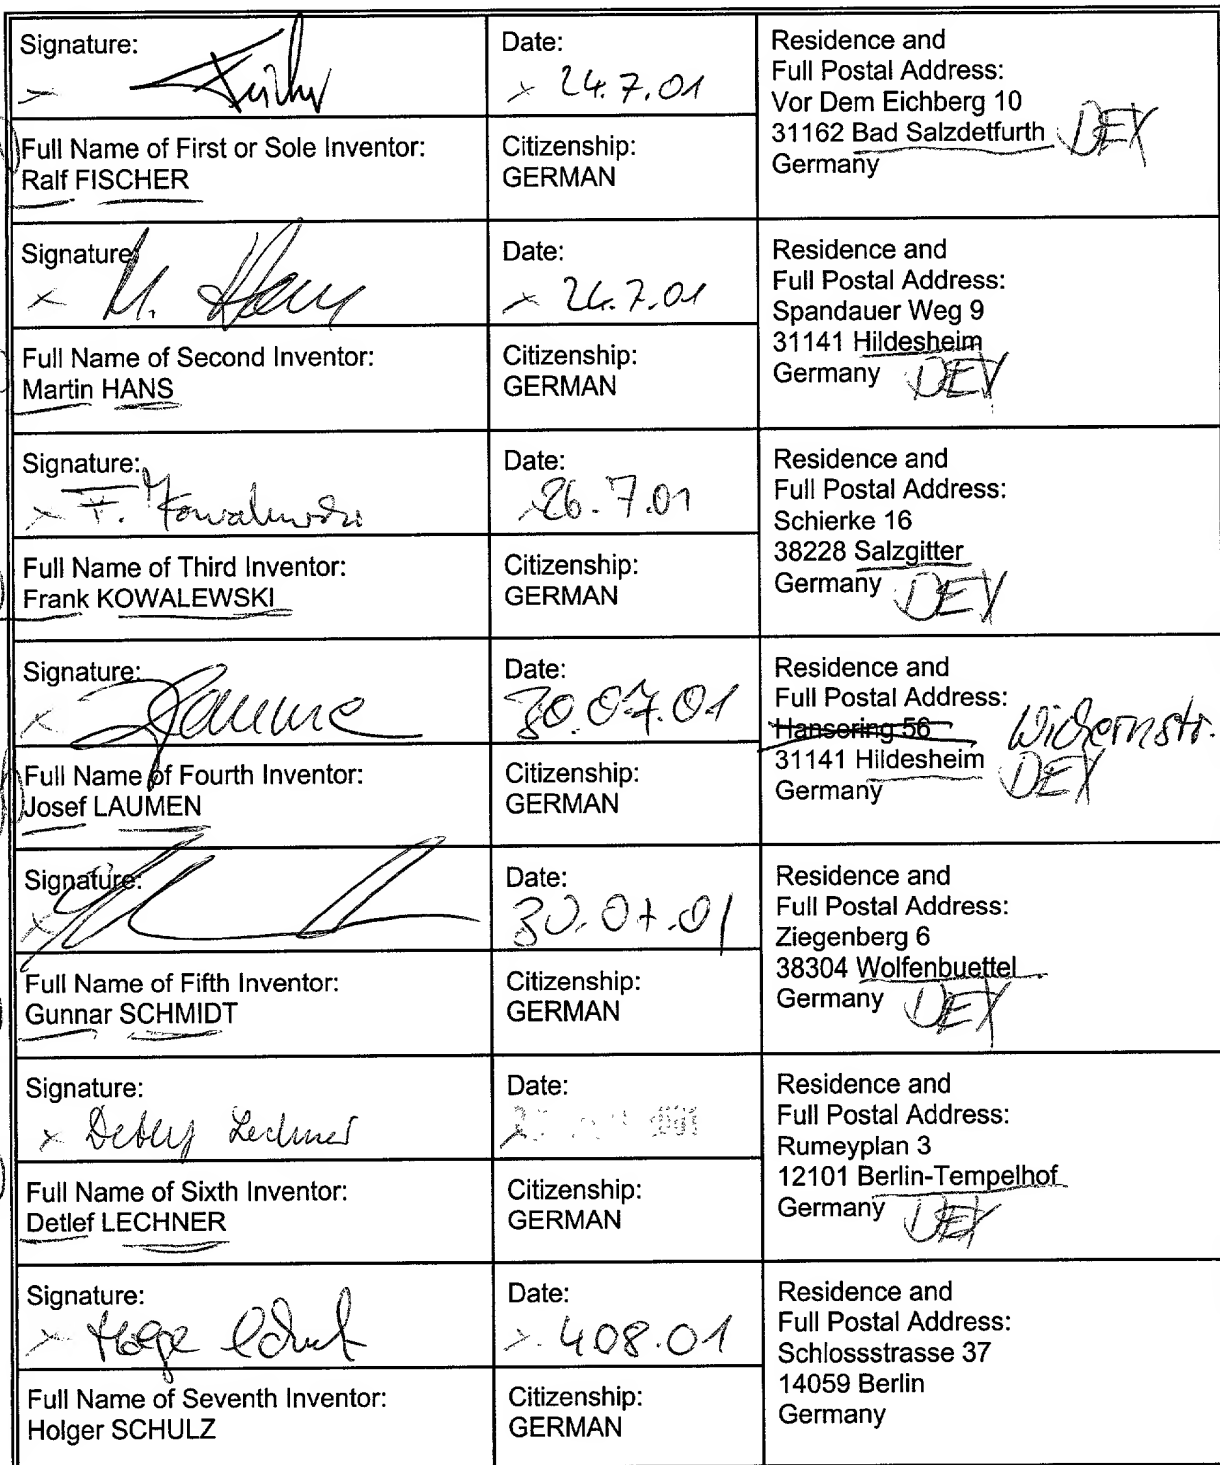 Signature:
Date:
× 24.7.01
Residence and
Full Postal Address:
Vor Dem Eichberg 10
31162 Bad Salzdetfurth DEX
Germany
Full Name of First or Sole Inventor:
Ralf FISCHER
Citizenship:
GERMAN
Signature:
× M. Hans
Date:
× 24.7.01
Residence and
Full Postal Address:
Spandauer Weg 9
31141 Hildesheim
Germany DEX
Full Name of Second Inventor:
Martin HANS
Citizenship:
GERMAN
Signature:
× F. Kowalewski
Date:
26.7.01
Residence and
Full Postal Address:
Schierke 16
38228 Salzgitter
Germany DEX
Full Name of Third Inventor:
Frank KOWALEWSKI
Citizenship:
GERMAN
Signature:
×
Date:
30.07.01
Residence and
Full Postal Address:
Hansering 56 Wichernstr.
31141 Hildesheim DEX
Germany
Full Name of Fourth Inventor:
Josef LAUMEN
Citizenship:
GERMAN
Signature:
×
Date:
30.07.01
Residence and
Full Postal Address:
Ziegenberg 6
38304 Wolfenbuettel
Germany DEX
Full Name of Fifth Inventor:
Gunnar SCHMIDT
Citizenship:
GERMAN
Signature:
× Detlef Lechner
Date:
×
Residence and
Full Postal Address:
Rumeyplan 3
12101 Berlin-Tempelhof
Germany DEX
Full Name of Sixth Inventor:
Detlef LECHNER
Citizenship:
GERMAN
Signature:
× Holger Schulz
Date:
× 408.01
Residence and
Full Postal Address:
Schlossstrasse 37
14059 Berlin
Germany
Full Name of Seventh Inventor:
Holger SCHULZ
Citizenship:
GERMAN